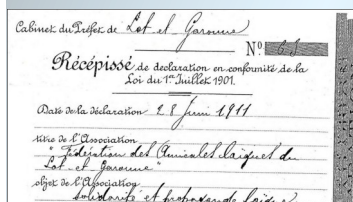 Cabinet du Préfet de Lot et Garonne
N°. 68
Récépissé de déclaration en conformité de la
Loi du 1er Juillet 1901.
Date de la déclaration 28 Juin 1911
titre de l'Association
" Fédération des Amicales laïques du
Lot-et-Garonne "
objet de l'Association
solidarité et propagande laïque